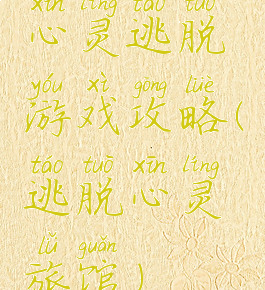 xīn líng táo tuō
心灵逃脱
yóu xì gōng lüè
游戏攻略(
táo tuō xīn líng
逃脱心灵
lǚ guǎn
旅馆)